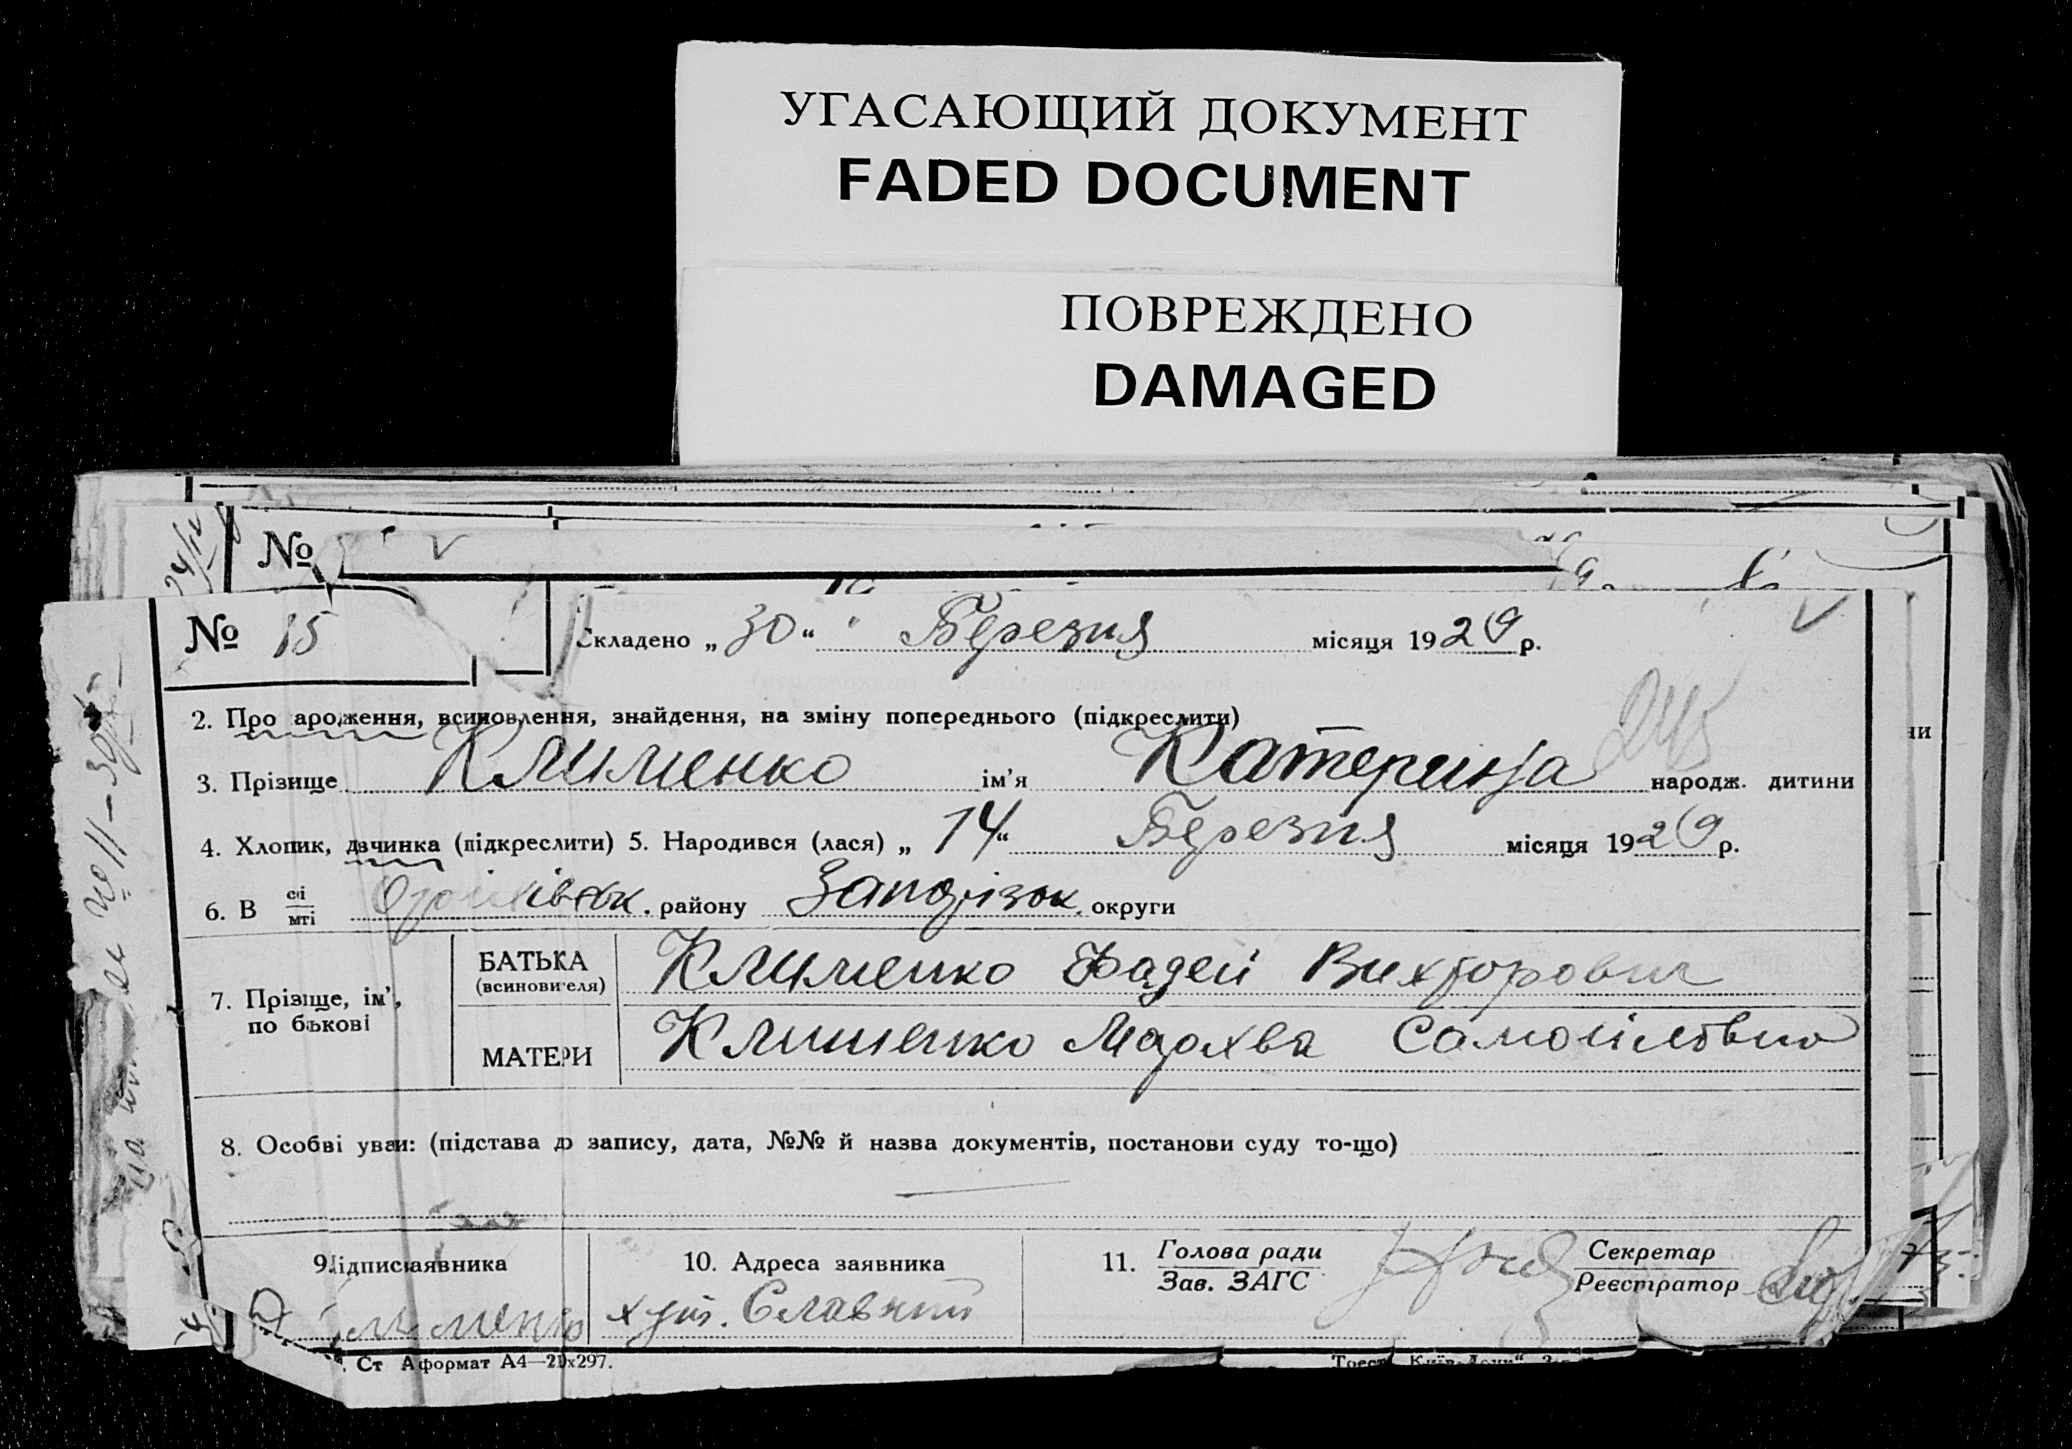 УГАСАЮЩИЙ ДОКУМЕНТ
FADED DOCUMENT
ПОВРЕЖДЕНО
DAMAGED
№
№ 15
Складено „ 30 “ Березня місяця 1929 р.
2. Про народження, всиновлення, знайдення, на зміну попереднього (підкреслити)
245
3. Прізвище Клименко ім’я Катерина народж. дитини
4. Хлопик, дівчинка (підкреслити) 5. Народився (лася) „ 14 “ Березня місяця 1929 р.
6. В селі мті району Запорізьк. округи
7. Прізвище, ім’я, по батькові
БАТЬКА (всиновителя) Клименко Фадей Вихторович
МАТЕРИ Клименко Мархва Самойловна
8. Особові уваги: (підстава до запису, дата, №№ й назва документів, постанови суду то-що)
9. Підпис заявника
10. Адреса заявника
11. Голова ради Зав. ЗАГС
Секретар Реєстратор
Клименко
хут. Славний
Ст Аформат А4—210х297.